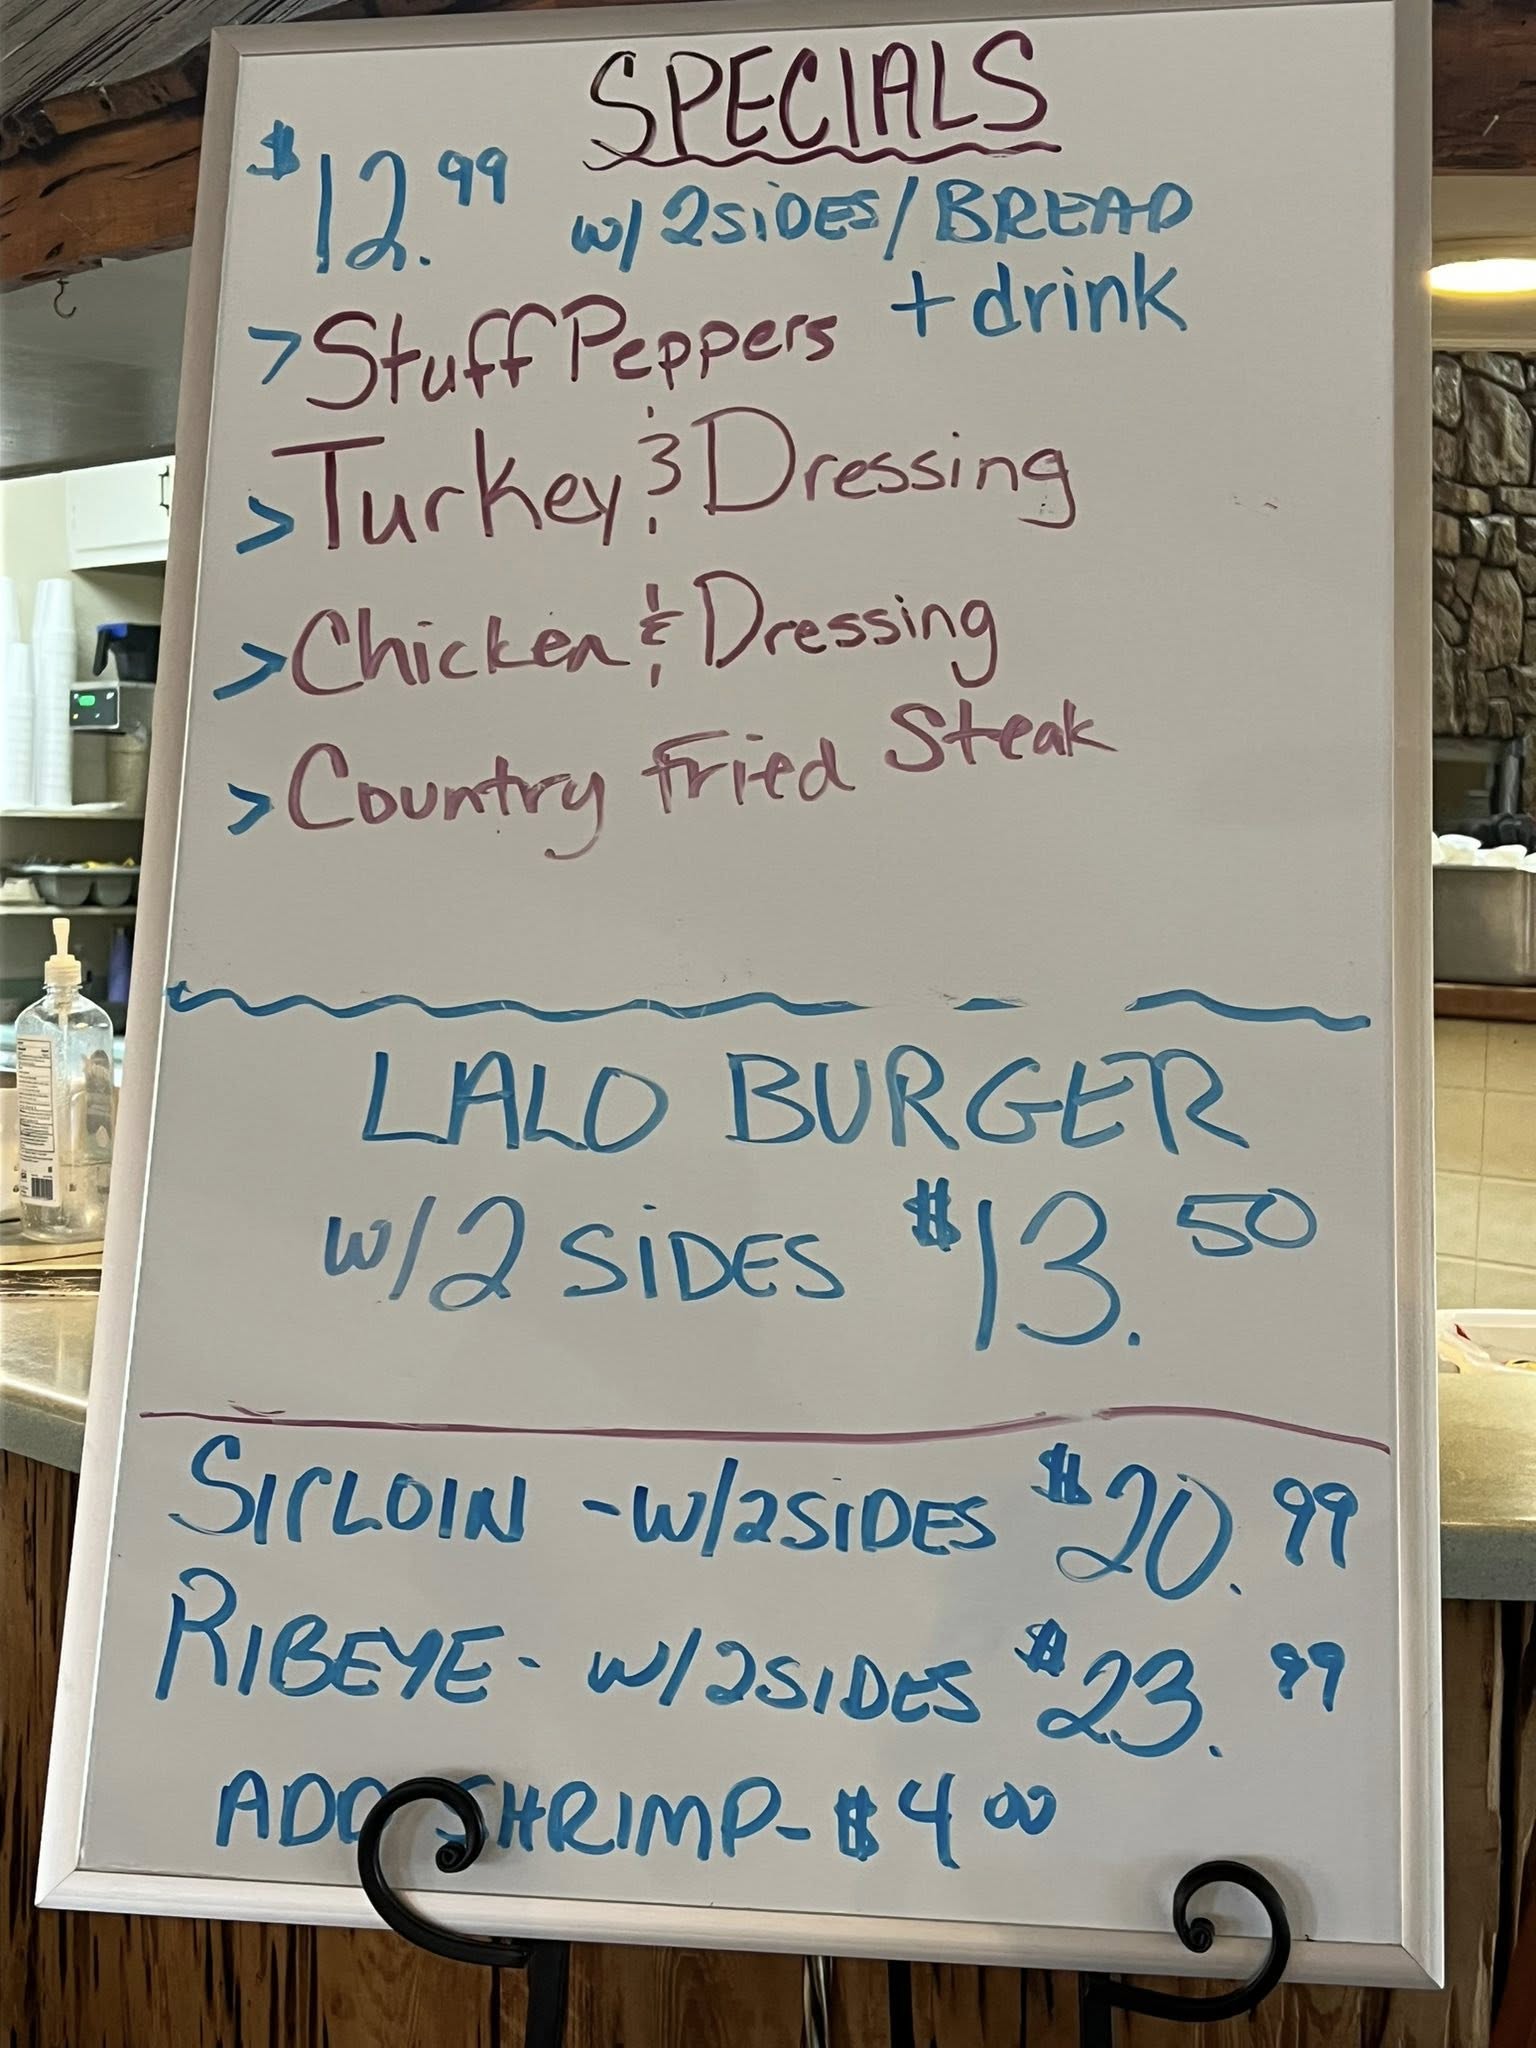 SPECIALS
$12.99 w/ 2 SiDES/BREAD
+ drink
> Stuff Peppers
> Turkey & Dressing
> Chicken & Dressing
> Country Fried Steak
LALO BURGER
w/ 2 SiDES $13.50
SIrLOIN - W/ 2 SiDES $20.99
RIBEYE - W/ 2 SIDES $23.99
ADD SHRIMP - $4 00